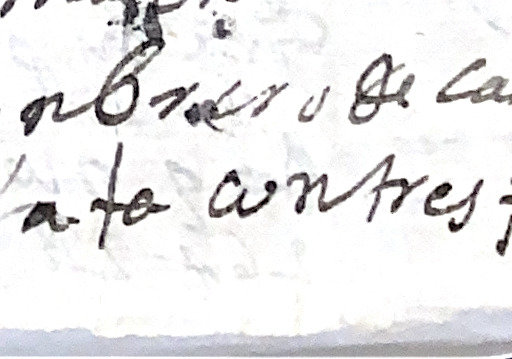 nbrero de ca
ata con tres